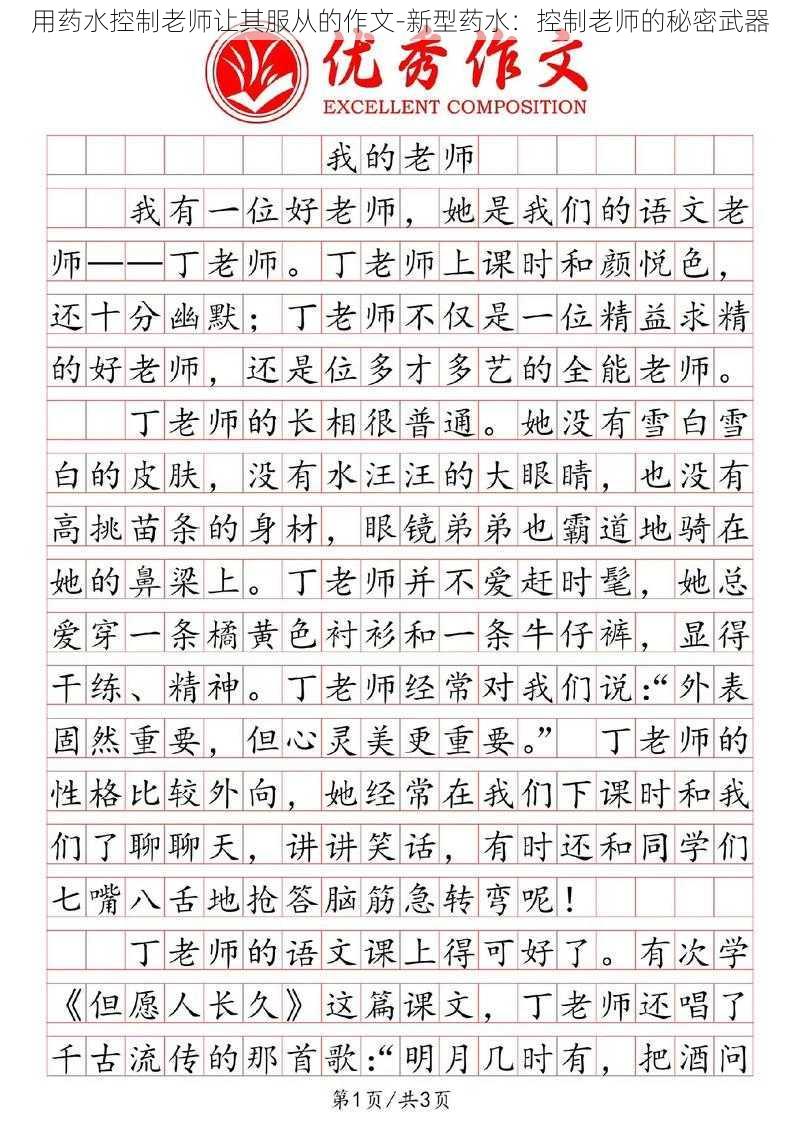 用药水控制老师让其服从的作文-新型药水：控制老师的秘密武器
优秀作文
EXCELLENT COMPOSITION
我的老师
我有一位好老师，她是我们的语文老
师——丁老师。丁老师上课时和颜悦色，
还十分幽默；丁老师不仅是一位精益求精
的好老师，还是位多才多艺的全能老师。
丁老师的长相很普通。她没有雪白雪
白的皮肤，没有水汪汪的大眼睛，也没有
高挑苗条的身材，眼镜弟弟也霸道地骑在
她的鼻梁上。丁老师并不爱赶时髦，她总
爱穿一条橘黄色衬衫和一条牛仔裤，显得
干练、精神。丁老师经常对我们说：“外表
固然重要，但心灵美更重要。” 丁老师的
性格比较外向，她经常在我们下课时和我
们了聊聊天，讲讲笑话，有时还和同学们
七嘴八舌地抢答脑筋急转弯呢！
丁老师的语文课上得可好了。有次学
《但愿人长久》这篇课文，丁老师还唱了
千古流传的那首歌：“明月几时有，把酒问
第1页/共3页